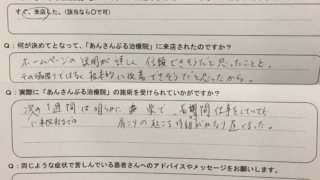 すぐ、来店した。(該当なら○で可)
Q：何が決めてとなって、「あんさんぶる治療院」に来店されたのですか？
ホームページの説明が詳しく信頼できそうだと思ったことと、
その場限りではなく根本的に改善できそうだと思ったから。
Q：実際に「あんさんぶる治療院」の施術を受けられていかがですか？
次の1週間は明らかに楽で、長時間仕事をしていても
に来院するまでの 肩こりの起こる時間がかなり遅くなった。
Q：同じような症状で苦しんでいる患者さんへのアドバイスやメッセージをお願いします。